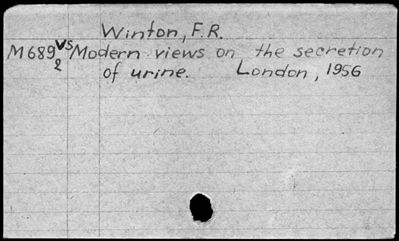 Winton, F.R.
M689 VS Modern views on the secretion
2 of urine. London, 1956